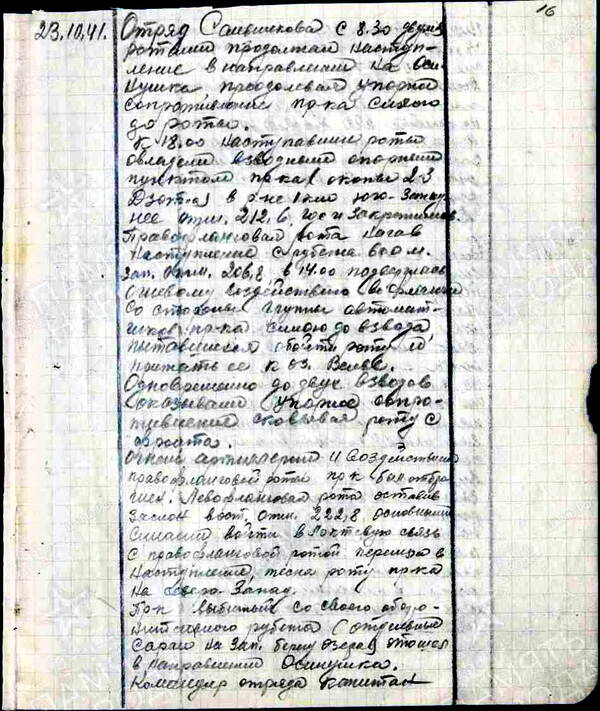 16
23.10.41. Отряд Сальникова с 8.30 двумя
ротами продолжал наступ-
ление в направлении на Оси-
нушка, преодолевая упорное
сопротивление пр-ка силою
до роты.
К 18.00 наступавшие роты
овладели взводным опорным
пунктом пр-ка (окопы 2-3
Дзота) в р-не 1 км юго-запад-
нее отм. 212,6, где и закрепились.
Правофланговая рота начав
наступление с рубежа
зап. отм. 206,8 в 14.00 подверглась
огневому воздействию
со стороны группы автомат-
чиков пр-ка силою до взвода,
пытавшиеся обойти роту и
прижать её к оз.
Одновременно до двух взводов
оказывали упорное сопро-
тивление сковывая роту с
фронта.
Огнем артиллерии и воздействием
правофланговой роты пр-к был отбро
шен. Левофланговая рота оставив
заслон вост. отм. 222,8 основными
силами войти в локтевую связь
с правофланговой ротой перешла в
наступление, тесня роту пр-ка
на северо-запад.
Пр-к выбитый со своего оборо-
нительного рубежа (отдельные
сараи на зап. берегу озера) отошел
в направлении Осинушка.
Командир отряда капитан